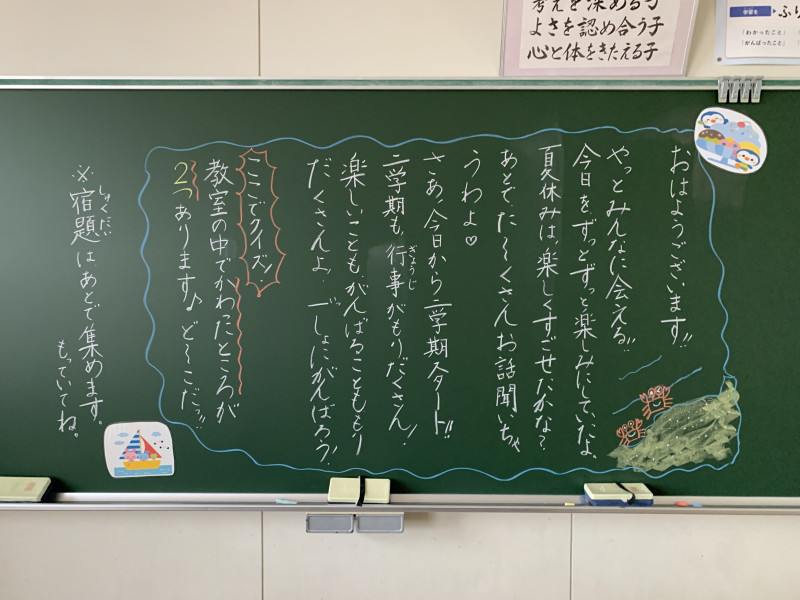 考えを深める子
よさを認め合う子
心と体をきたえる子
学習を
ふり
「わかったこと」
「がんばったこと」
おはようございます!!
やっとみんなに会える!!
今日をずっとずっと楽しみにしていたよ。
夏休みは、楽しくすごせたかな?
あとでた〜くさんお話聞いちゃ
うわよ♡
さあ、今日から二学期スタート!!
二学期も、行事がもりだくさん!
ぎょうじ
楽しいことも、がんばることももり
だくさんよ!いっしょにがんばろう!
ここでクイズ!
教室の中でかわったところが
2つあります♪ど〜こだっ!!
※宿題はあとで集めます。
しゅくだい
もっていてね。